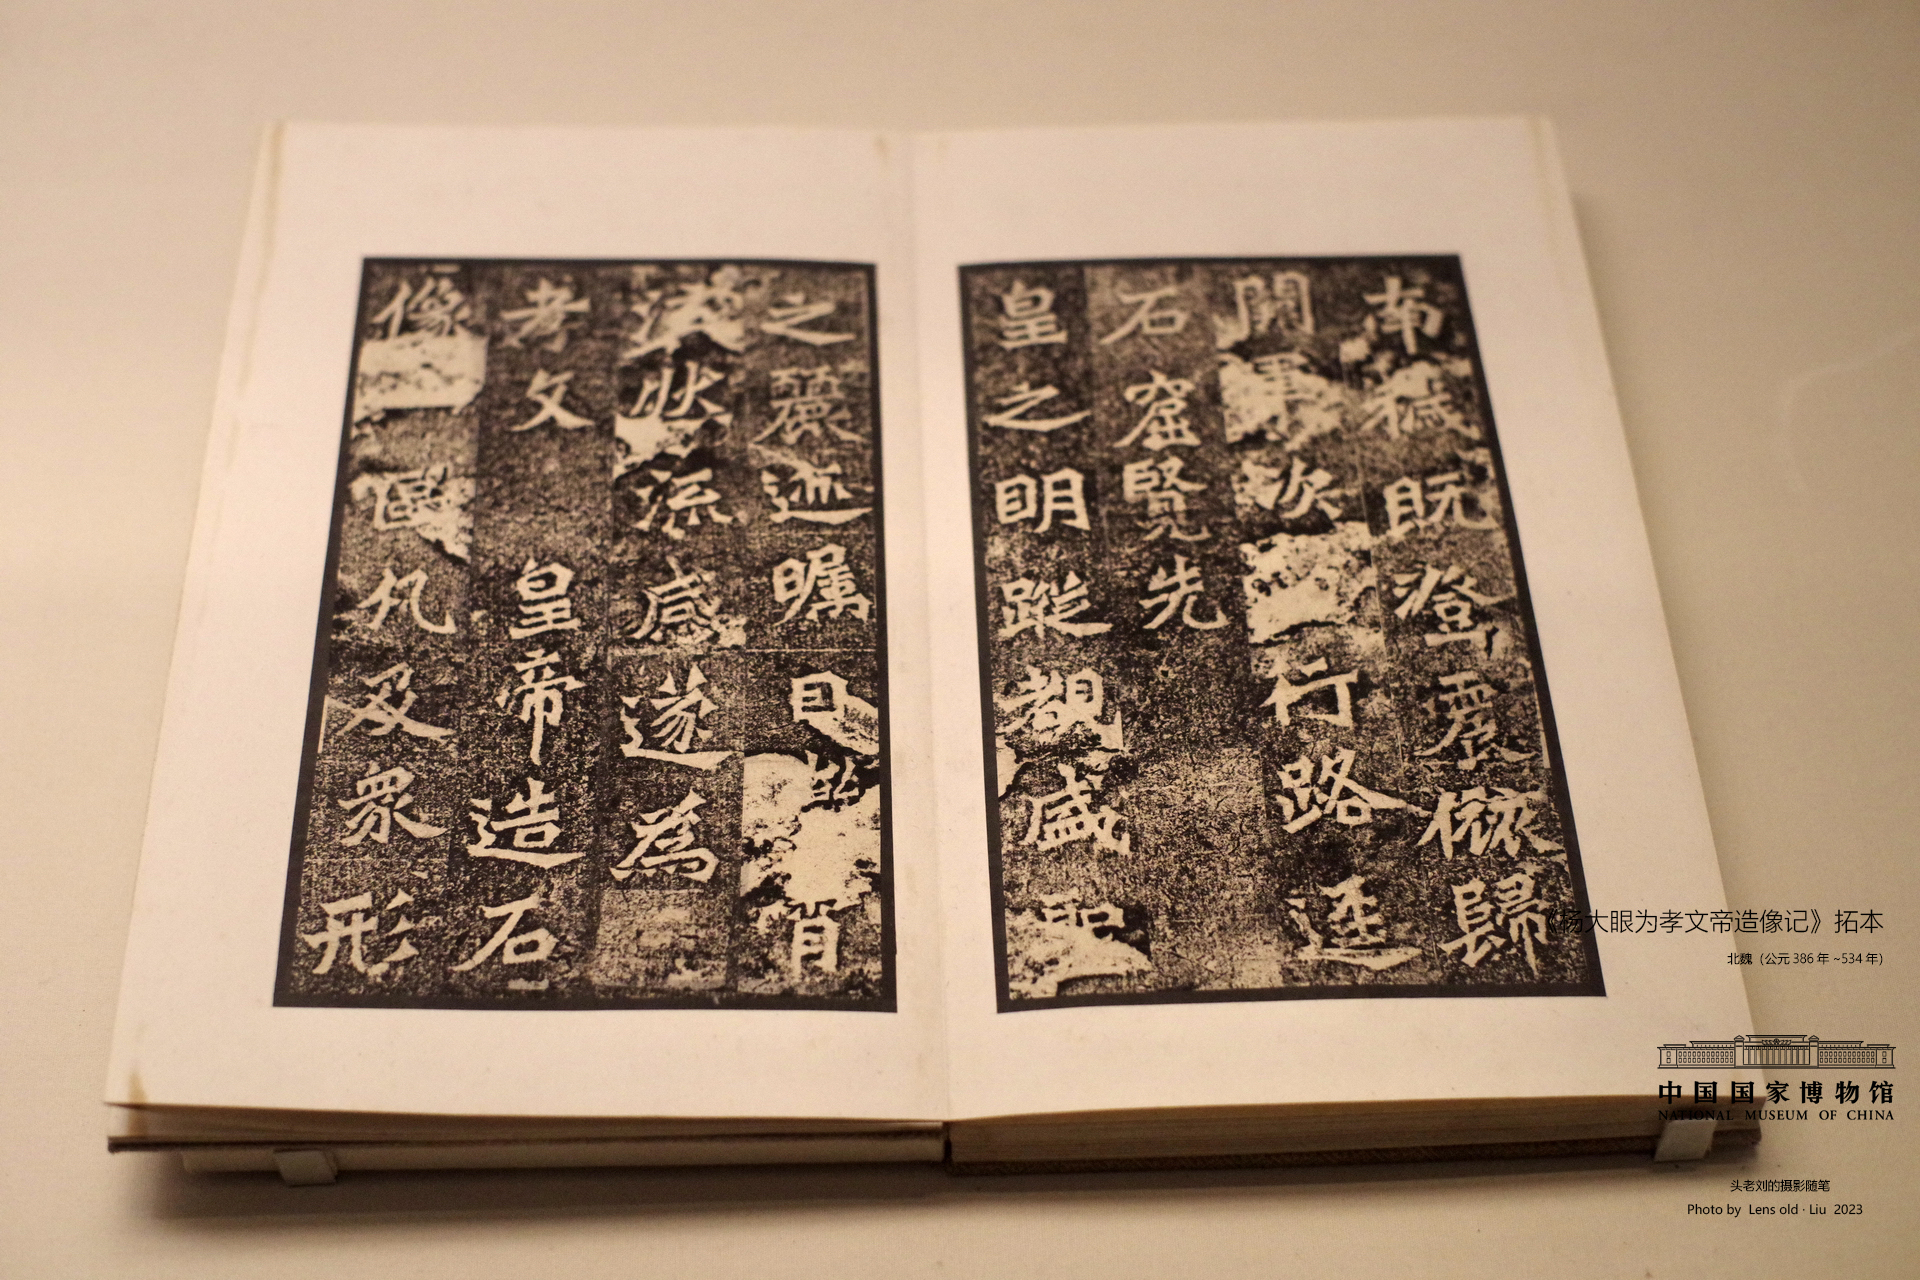 南穢既澄震旅歸
闕軍次行路逕
石窟覽先
皇之明蹤覩盛聖
之麗迹矚目霄
泫然流感遂為
孝文皇帝造石
像區凡及衆形
《杨大眼为孝文帝造像记》拓本
北魏（公元 386 年 ~534 年）
中国国家博物馆
NATIONAL MUSEUM OF CHINA
头老刘的摄影随笔
Photo by Lens old · Liu 2023